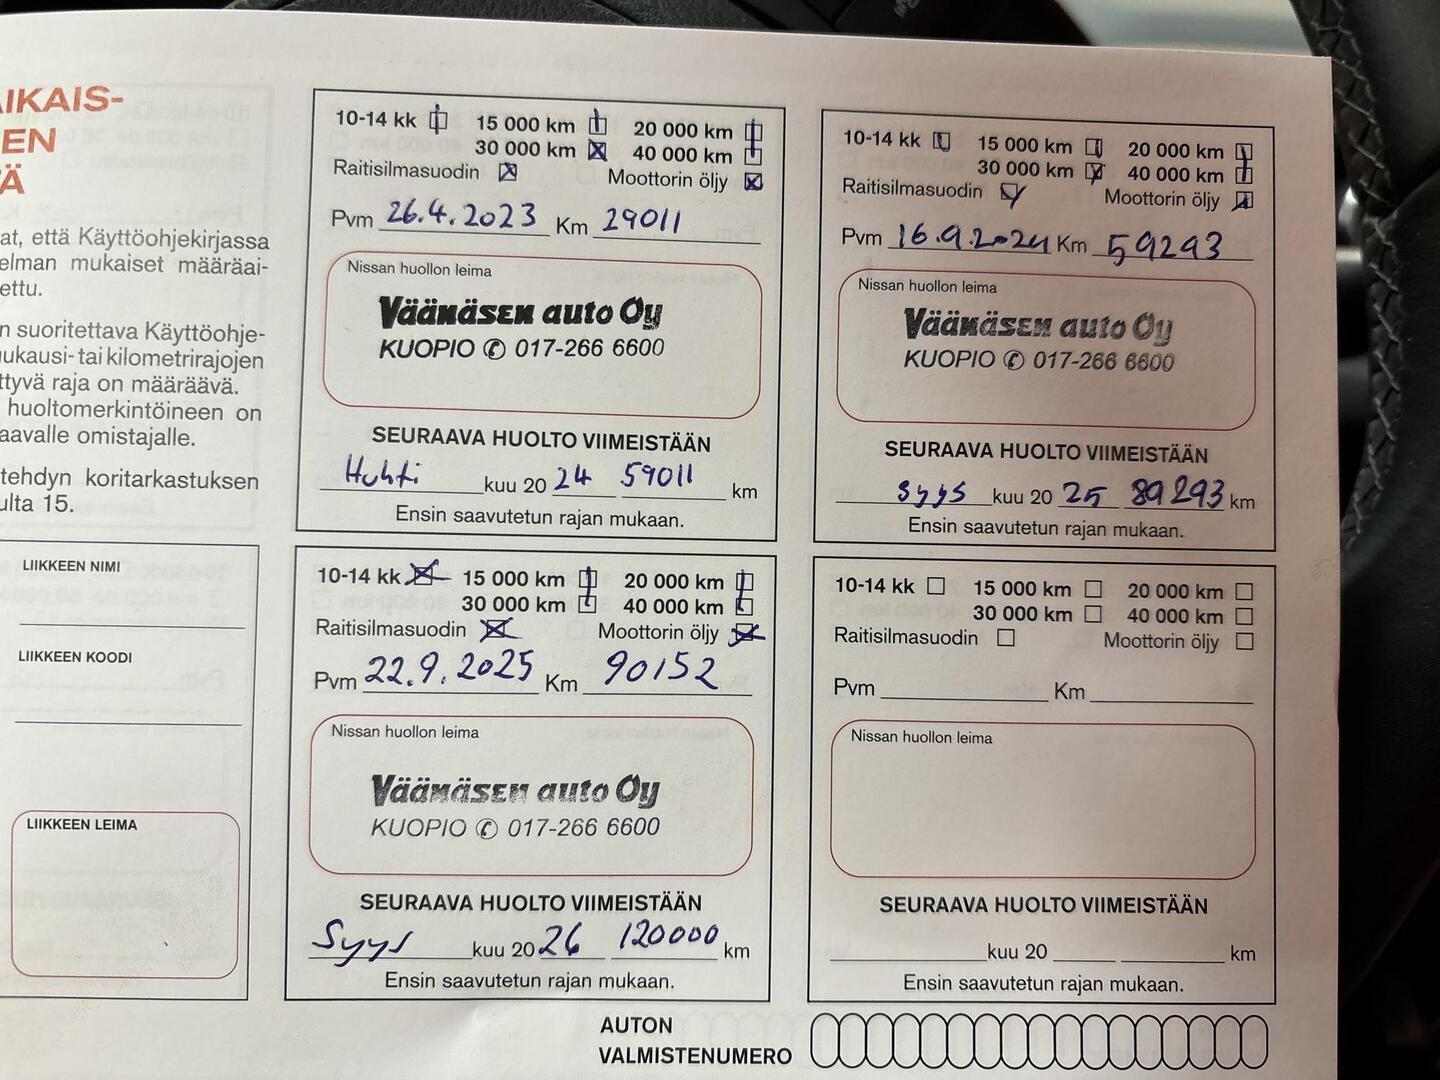 AIKAIS-
EN
Ä
at, että Käyttöohjekirjassa
elman mukaiset määräai-
ettu.
n suoritettava Käyttöohje-
ukausi- tai kilometrirajojen
ttyvä raja on määräävä.
huoltomerkintöineen on
aavalle omistajalle.
tehdyn koritarkastuksen
ulta 15.
LIIKKEEN NIMI
LIIKKEEN KOODI
LIIKKEEN LEIMA
10-14 kk 15 000 km 20 000 km
30 000 km 40 000 km
Raitisilmasuodin Moottorin öljy
Pvm 26.4.2023 Km 29011
Nissan huollon leima
Väänäsen auto Oy
KUOPIO ✆ 017-266 6600
SEURAAVA HUOLTO VIIMEISTÄÄN
Huhti kuu 20 24 59011 km
Ensin saavutetun rajan mukaan.
10-14 kk 15 000 km 20 000 km
30 000 km 40 000 km
Raitisilmasuodin Moottorin öljy
Pvm 16.9.2024 Km 59293
Nissan huollon leima
Väänäsen auto Oy
KUOPIO ✆ 017-266 6600
SEURAAVA HUOLTO VIIMEISTÄÄN
syys kuu 20 25 89293 km
Ensin saavutetun rajan mukaan.
10-14 kk 15 000 km 20 000 km
30 000 km 40 000 km
Raitisilmasuodin Moottorin öljy
Pvm 22.9.2025 Km 90152
Nissan huollon leima
Väänäsen auto Oy
KUOPIO ✆ 017-266 6600
SEURAAVA HUOLTO VIIMEISTÄÄN
Syys kuu 20 26 120000 km
Ensin saavutetun rajan mukaan.
10-14 kk 15 000 km 20 000 km
30 000 km 40 000 km
Raitisilmasuodin Moottorin öljy
Pvm Km
Nissan huollon leima
SEURAAVA HUOLTO VIIMEISTÄÄN
kuu 20 km
Ensin saavutetun rajan mukaan.
AUTON
VALMISTENUMERO